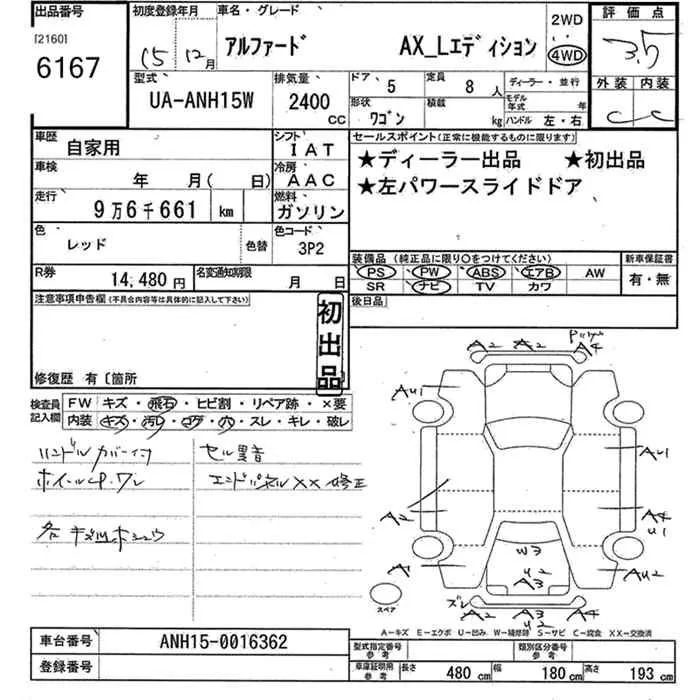 出品番号
[2160]
6167
初度登録年月
15年 12月
車名・グレード
アルファード AX_Lエディション
2WD
4WD
評価点
3.5
外装 内装
C C
型式
UA-ANH15W
排気量
2400 CC
ドア 5
形状 ワゴン
定員 8 人
積載 kg
ディーラー・並行
モデル年式 年
ハンドル 左・右
車歴 自家用
シフト IAT
車検 年 月( 日)
冷房 AAC
走行 9万6千661 km
燃料 ガソリン
色 レッド 色替
色コード 3P2
R券 14,480円
名変通知期限 月 日
セールスポイント(正常に機能するものに限ります)
★ディーラー出品 ★初出品
★左パワースライドドア
装備品 (純正品に限り○をつけてください)
PS PW ABS エアB AW
SR ナビ TV カワ
新車保証書
有・無
後日品
注意事項申告欄(不具合内容等は具体的に記入して下さい)
初出品
修復歴 有〔箇所
検査員記入欄
FW キズ・飛石・ヒビ割・リペア跡・×要
内装 キズ・汚レ・コゲ・穴・スレ・キレ・破レ
ハンドルカバー付
セル異音
エンドパネルXX修正
A2 A2 A4
AU1
AU1
A2
A4
U1
W3
U2
A3
A1
AU2
ズレ A2 A3 A4
U2
スペア
A-キズ E-エクボ U-凹み W-補修跡 S-サビ C-腐食 XX-交換済
車台番号 ANH15-0016362
登録番号
型式指定番号 参考
類別区分番号 参考
車庫証明用 参考
長さ 480 cm 幅 180 cm 高さ 193 cm